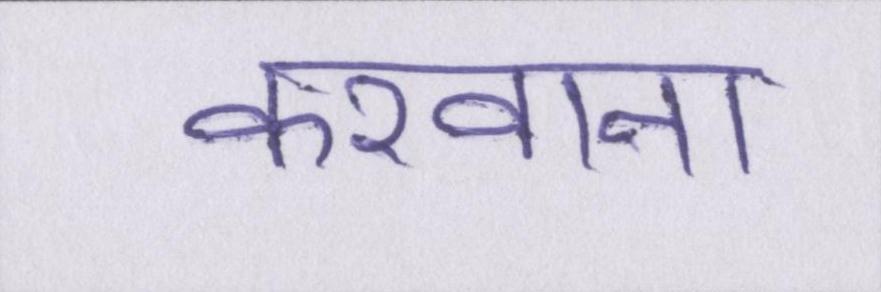 करवाना